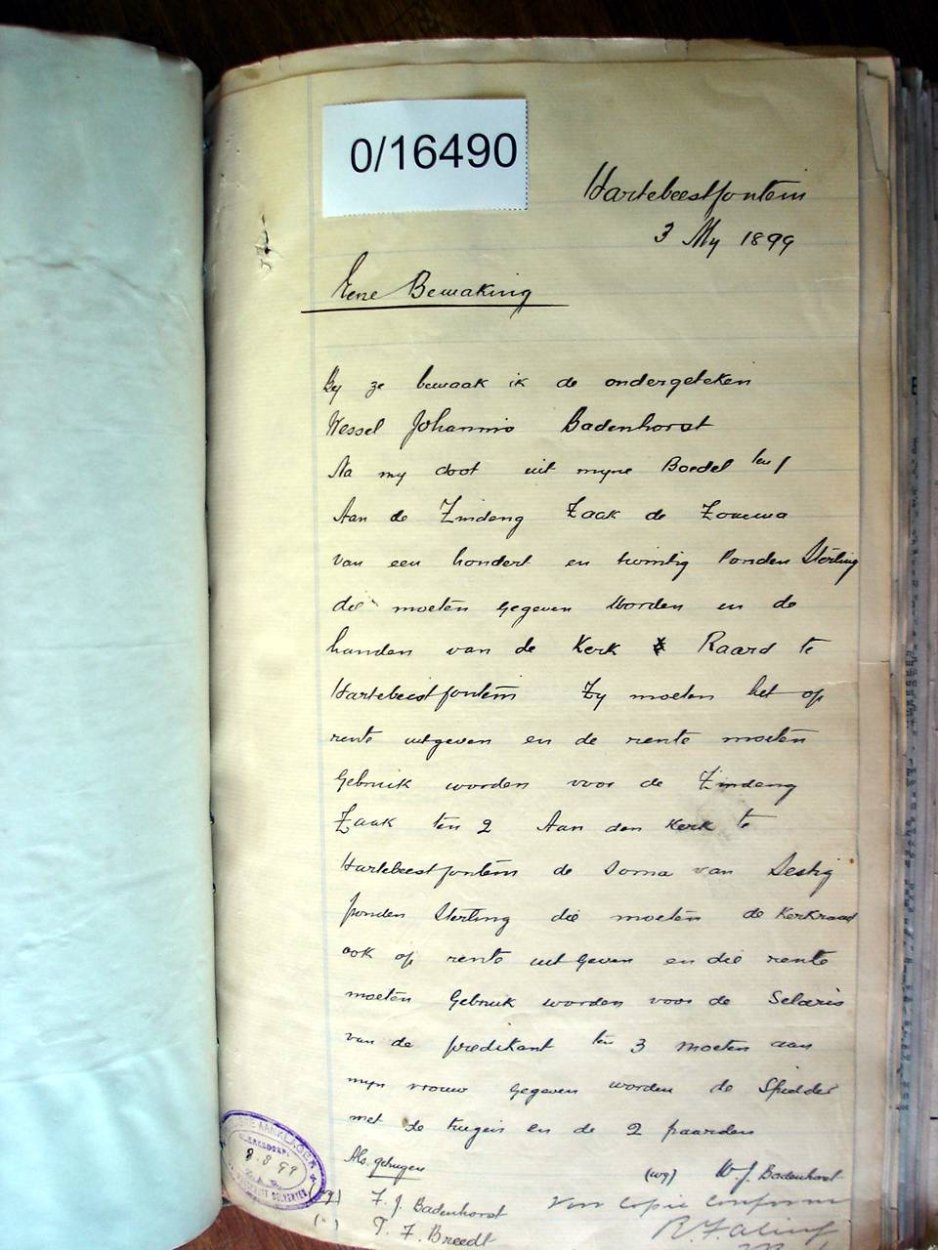 0/16490
Hartebeestfontein
3 My 1899
Eene Bewaking
By ze bewaak ik de ondergeteken
Wessel Johannis Badenhorst
Na my doot uit myne Boedel ten 1
Aan de Zindeng Zaak de Zomma
van een hondert en twintig Ponden Sterling
die moeten gegeven Worden in de
handen van de Kerk Raard te
Hartebeestfontein Zy moeten het op
rente uitgeven en de rente moeten
Gebruik worden voor de Zindeng
Zaak ten 2 Aan den Kerk te
Hartebeestfontein de Soma van Sestig
ponden Sterling die moeten de Kerkraad
ook op rente uit Geven en die rente
moeten Gebruik worden voor de Selaris
van de predikant ten 3 moeten aan
mijn vrouw gegeven worden de Spidder
met ze tuigen en de 2 paarden
Als getuigen (wg) W. J. Badenhorst
F. J. Badenhorst Voor Copie Conform
T. F. Breedt
8.8.99